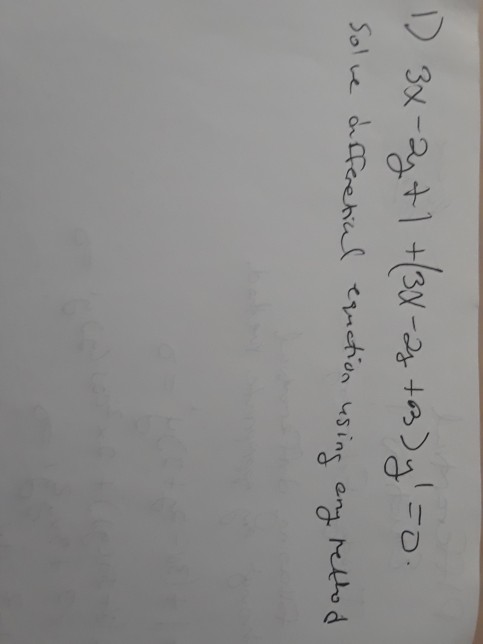 1) 3x - 2y + 1 + (3x - 2y + 3) y' = 0.
Solve differential equation using any method